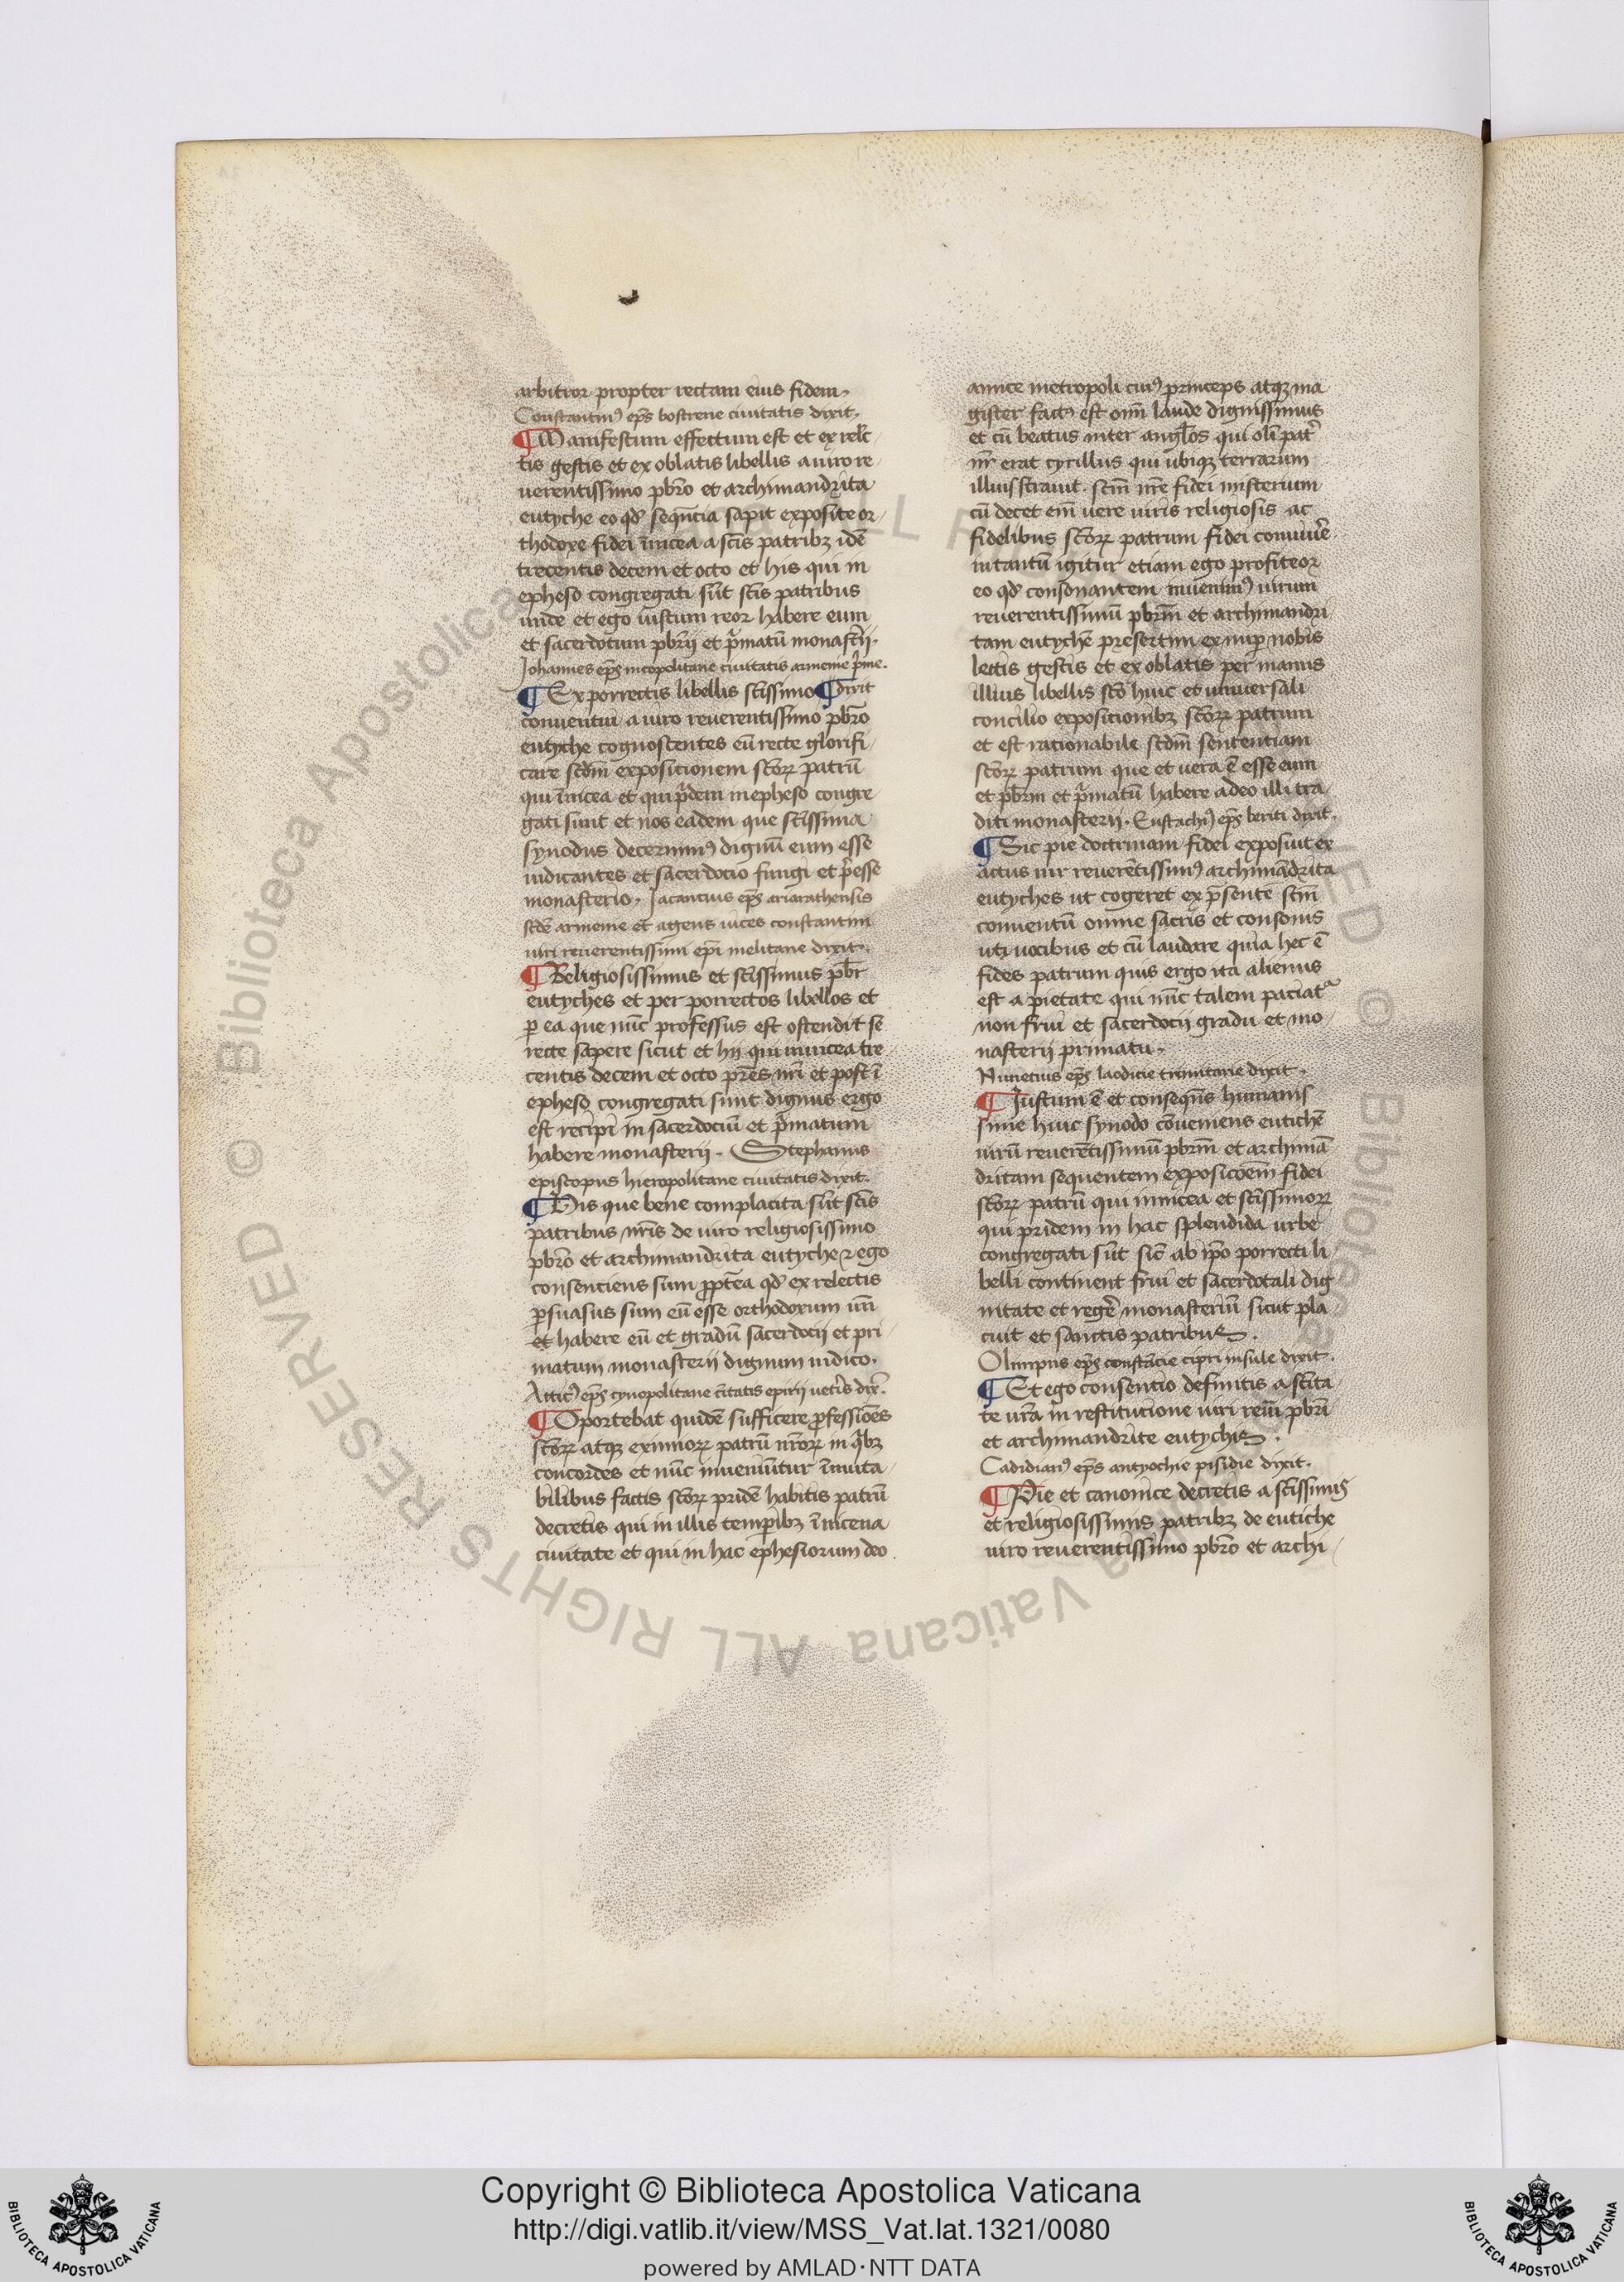 arbitror propter rectam eius fidem.
Constantin⁹ ep̄s bostrene ciuitatis dixit.
¶ Manifestum effectum est et ex relc̄
tis gestis et ex oblatis libellis a uiro re
uerentissimo pb̄ro et archimandrita
eutyche eo qd̄ seqūncia sapit exposite or
thodoxe fidei ī nicea a sc̄is patribꝫ idē
trecentis decem et octo et his qui in
epheso congregati sūt sc̄is patribus
unde et ego iustum reor habere eum
et sacerdotum pb̄rii et p̄matū monast̄ii.
Johannes ep̄s nicopolitane ciuitatis armenie p̄me.
¶ Ex porrectis libellis sc̄issimo ¶ dixit
conuentui a uiro reuerentissimo pb̄ro
eutyche cognoscentes eū recte glorifi
care sc̄dm̄ expositionem sc̄orꝝ patrū
qui ī nicea et qui p̄dem in epheso congre
gati sunt et nos eadem que sc̄issima
synodus decernim⁹ dignū eum esse
iudicantes et sacerdocio fungi et p̄esse
monasterio. Jacantius ep̄s ariarathensis
sc̄de armenie et agens uices constantini
uiri reuerentissimi ep̄i melitane dixit.
¶ Religiosissimus et sc̄issimus pb̄r
eutyches et per porrectos libellos et
ꝑ ea que nūc professus est ostendit se
recte sapere sicut et hii qui in nicea tre
centis decem et octo pr̄es nr̄i et post ī
epheso congregati sunt dignus ergo
est recipi in sacerdociū et p̄matum
habere monasterii. Stephanus
episcopus hieropolitane ciuitatis dixit.
¶ His que bene complacita sūt sc̄is
patribus nr̄is de uiro religiosissimo
pb̄ro et archimandrita eutyche ⁊ ego
consenciens sum ꝓpt̄ea qd̄ ex relectis
ꝑsuasus sum eū esse orthodoxum uirū
et habere eū et gradū sacerdocii et pri
matum monasterii dignum iudico.
Attic⁹ ep̄s cynopolitane c̄itatis epirii uet̄is dix̄.
¶ Oportebat quidē sufficere ꝓfessiōes
sc̄orꝝ atqꝫ eximiorꝝ patrū nr̄orꝝ in q̄bꝫ
concordes et nūc inueniūtur ī muta
bilibus factis sc̄orꝝ pridē habitis patrū
decretis qui in illis temꝑibꝫ ī nicena
ciuitate et qui in hac ephesiorum deo
amice metropoli cui⁹ princeps atqꝫ ma
gister fact⁹ est om̄i laude dignissimus
et cū beatus inter angl̄os qui olī pat̄
nr̄ erat cyrillus qui ubiqꝫ terrarum
illuistrauit. sc̄m nr̄e fidei misterium
cū decet em̄ uere uiris religiosis ac
fidelibus sc̄orꝝ patrum fidei conuiuēe
in tantū igitur etiam ego profiteor
eo qd̄ consonantem inuenim⁹ uirum
reuerentissimū pb̄rm̄ et archimandri
tam eutychē presertim ex nuꝑ nobis
lectis gestis et ex oblatis per manus
illius libellis sc̄o huic et uniuersali
concilio expositionibꝫ sc̄orꝝ patrum
et est rationabile sc̄dm̄ sententiam
sc̄orꝝ patrum que et uera ē esse eum
et pb̄rm et p̄matū habere adeo illi tra
diti monasterii. Eustachi⁹ ep̄s beriti dixit.
¶ Sic pie doctrinam fidei exposuit ex
actus uir reuerētissim⁹ archimādrita
eutyches ut cogeret ex p̄sente sc̄m
conuentū omne sacris et consonis
uti uocibus et cū laudare quia hec ē
fides patrum quis ergo ita alienus
est a pietate qui nūc talem paciatᷣ
non frui et sacerdocii gradu et mo
nasterii primatu.
Nunetius ep̄s laodicie trinitarie dixit.
¶ Justum ē et conseqūns humanis
sime huic synodo cōueniens eutichē
uirū reuerētissimū pb̄rm̄ et archimā
dritam sequentem exposicōem fidei
sc̄orꝝ patrū qui in nicea et sc̄issimorꝝ
qui pridem in hac splendida urbe
congregati sūt sic̄ ab ip̄o porrecti li
belli continent frui et sacerdotali dig
nitate et reger̄ monasteriū sicut pla
cuit et sanctis patribus.
Olimpus ep̄s constācie cipri insule dixit.
¶ Et ego consentio definitis a sc̄ita
te ur̄a in restitucione uiri reu̅i̅ pb̄ri
et archimandrite eutychis.
Cadidian⁹ ep̄s antyochie pisidie dixit.
¶ Pie et canonice decretis a sc̄issimis
et religiosissimis patribꝫ de eutiche
uiro reuerentissimo pb̄ro et archi
Copyright © Biblioteca Apostolica Vaticana
http://digi.vatlib.it/view/MSS_Vat.lat.1321/0080
powered by AMLAD·NTT DATA
BIBLIOTECA APOSTOLICA VATICANA
BIBLIOTECA APOSTOLICA VATICANA
© Biblioteca Apostolica Vaticana ALL RIGHTS RESERVED